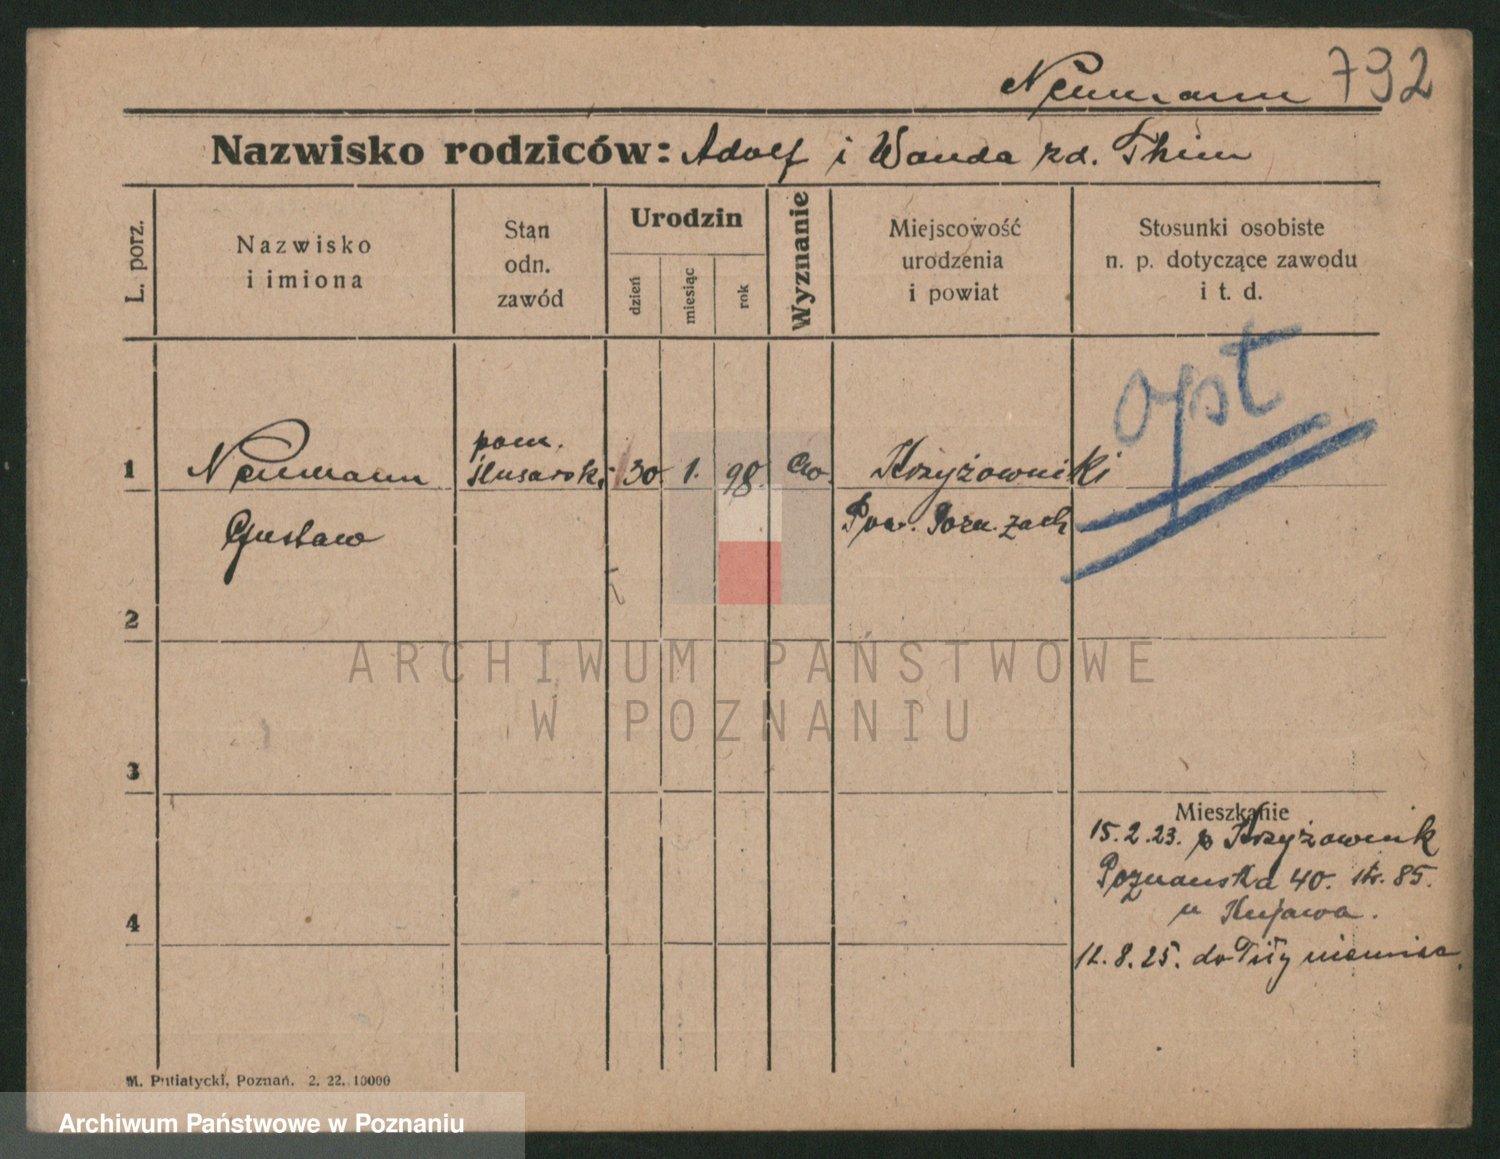 Neumann 792
Nazwisko rodziców: Adolf i Wanda zd. Thim
L. porz.
Nazwisko
i imiona
Stan
odn.
zawód
Urodzin
dzień
miesiąc
rok
Wyznanie
Miejscowość
urodzenia
i powiat
Stosunki osobiste
n. p. dotyczące zawodu
i t. d.
opt
1 Neumann pom. ślusarsk. 30 1. 98. ew. Krzyżowniki
Gustaw Pow. Pozn. zach
2
3
4
Mieszkanie
15.2.23. Krzyżownik
Poznańska 40. str. 85.
u Kujawa.
12.8.25. do Piły
M. Putiatycki, Poznań. 2. 22. 10000
ARCHIWUM PAŃSTWOWE
W POZNANIU
Archiwum Państwowe w Poznaniu